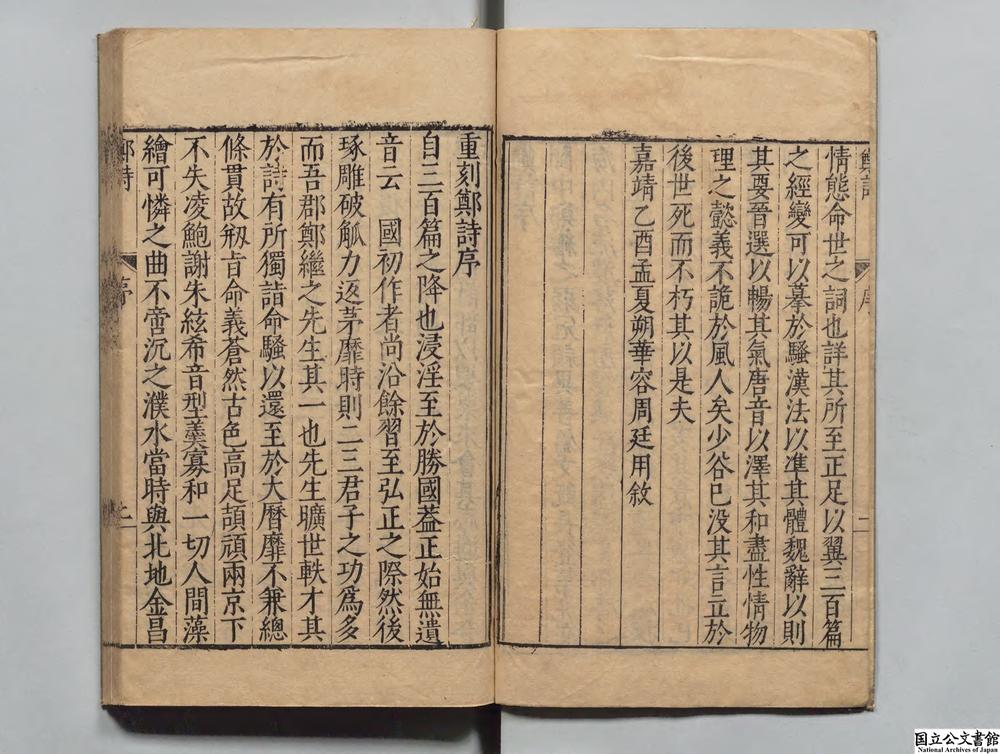 鄭詩
序
二
情態命世之詞也詳其所至正足以翼三百篇
之經變可以摹於騷漢法以準其體魏辭以則
其要晉選以暢其氣唐音以澤其和盡性情物
理之懿義不詭於風人矣少谷已没其言立於
後世死而不朽其以是夫
嘉靖乙酉孟夏朔華容周廷用敘
重刻鄭詩序
自三百篇之降也浸淫至於勝國葢正始無遺
音云 國初作者尚沿餘習至弘正之際然後
琢雕破觚力返茅靡時則二三君子之功爲多
而吾郡鄭繼之先生其一也先生曠世軼才其
於詩有所獨詣命騷以還至於大曆靡不兼總
條貫故剏㫖命義蒼然古色高足頡頏兩京下
不失凌鮑謝朱絃希音型羹寡和一切人間藻
繪可憐之曲不啻沉之濮水當時與北地金昌
鄭詩
序
國立公文書館
National Archives of Japan